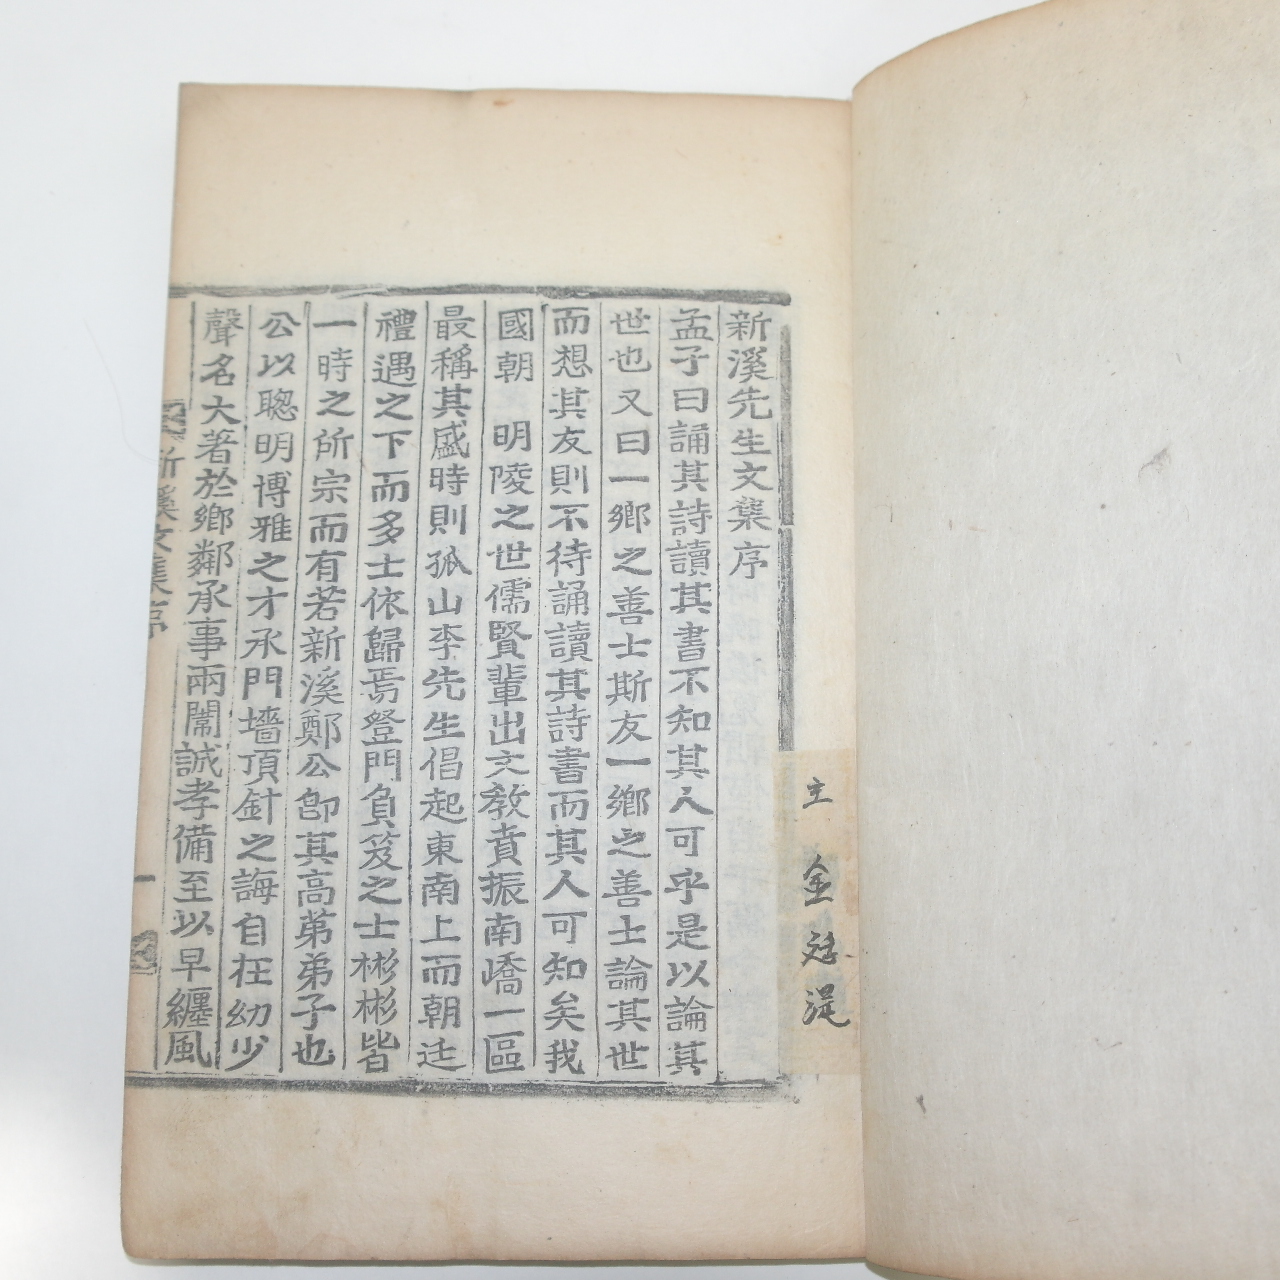 新溪先生文集序
孟子曰誦其詩讀其書不知其人可乎是以論其
世也又曰一鄉之善士斯友一鄉之善士論其世
而想其友則不待誦讀其詩書而其人可知矣我
國朝 明陵之世儒賢輩出文教賁振南嶠一區
最稱其盛時則孤山李先生倡起東南上而朝廷
禮遇之下而多士依歸焉登門負笈之士彬彬皆
一時之所宗而有若新溪鄭公卽其高苐弟子也
公以聰明博雅之才承門墻頂針之誨自在幼少
聲名大著於鄉鄰承事兩闈誠孝備至以早纏風
新溪文集序
一
主 金